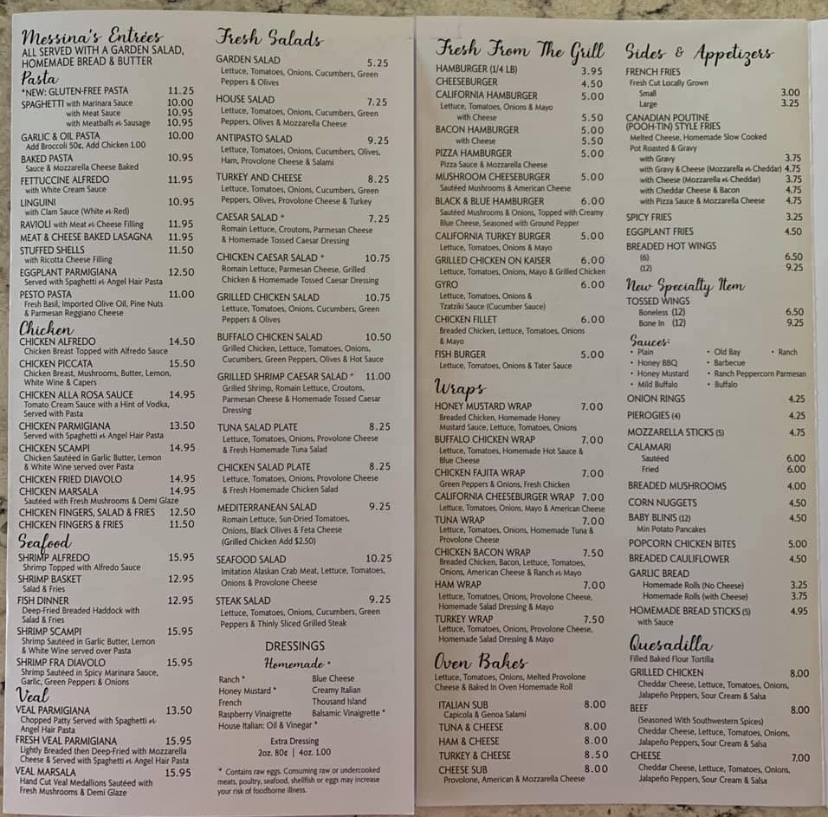 Messina's Entrées
ALL SERVED WITH A GARDEN SALAD,
HOMEMADE BREAD & BUTTER
Pasta
*NEW: GLUTEN-FREE PASTA 11.25
SPAGHETTI with Marinara Sauce 10.00
with Meat Sauce 10.95
with Meatballs or Sausage 10.95
GARLIC & OIL PASTA 10.00
Add Broccoli 50¢, Add Chicken 1.00
BAKED PASTA 10.95
Sauce & Mozzarella Cheese Baked
FETTUCCINE ALFREDO 11.95
with White Cream Sauce
LINGUINI 10.95
with Clam Sauce (White or Red)
RAVIOLI with Meat or Cheese Filling 11.95
MEAT & CHEESE BAKED LASAGNA 11.95
STUFFED SHELLS 11.50
with Ricotta Cheese Filling
EGGPLANT PARMIGIANA 12.50
Served with Spaghetti or Angel Hair Pasta
PESTO PASTA 11.00
Fresh Basil, Imported Olive Oil, Pine Nuts
& Parmesan Reggiano Cheese
Chicken
CHICKEN ALFREDO 14.50
Chicken Breast Topped with Alfredo Sauce
CHICKEN PICCATA 15.50
Chicken Breast, Mushrooms, Butter, Lemon,
White Wine & Capers
CHICKEN ALLA ROSA SAUCE 14.95
Tomato Cream Sauce with a Hint of Vodka,
Served with Pasta
CHICKEN PARMIGIANA 13.50
Served with Spaghetti or Angel Hair Pasta
CHICKEN SCAMPI 14.95
Chicken Sautéed in Garlic Butter, Lemon
& White Wine served over Pasta
CHICKEN FRIED DIAVOLO 14.95
CHICKEN MARSALA 14.95
Sautéed with Fresh Mushrooms & Demi Glaze
CHICKEN FINGERS, SALAD & FRIES 12.50
CHICKEN FINGERS & FRIES 11.50
Seafood
SHRIMP ALFREDO 15.95
Shrimp Topped with Alfredo Sauce
SHRIMP BASKET 12.95
Salad & Fries
FISH DINNER 12.95
Deep-Fried Breaded Haddock with
Salad & Fries
SHRIMP SCAMPI 15.95
Shrimp Sautéed in Garlic Butter, Lemon
& White Wine served over Pasta
SHRIMP FRA DIAVOLO 15.95
Shrimp Sautéed in Spicy Marinara Sauce,
Garlic, Green Peppers & Onions
Veal
VEAL PARMIGIANA 13.50
Chopped Patty Served with Spaghetti or
Angel Hair Pasta
FRESH VEAL PARMIGIANA 15.95
Lightly Breaded then Deep-Fried with Mozzarella
Cheese & Served with Spaghetti or Angel Hair Pasta
VEAL MARSALA 15.95
Hand Cut Veal Medallions Sautéed with
Fresh Mushrooms & Demi Glaze
Fresh Salads
GARDEN SALAD 5.25
Lettuce, Tomatoes, Onions, Cucumbers, Green
Peppers & Olives
HOUSE SALAD 7.25
Lettuce, Tomatoes, Onions, Cucumbers, Green
Peppers, Olives & Mozzarella Cheese
ANTIPASTO SALAD 9.25
Lettuce, Tomatoes, Onions, Cucumbers, Olives,
Ham, Provolone Cheese & Salami
TURKEY AND CHEESE 8.25
Lettuce, Tomatoes, Onions, Cucumbers, Green
Peppers, Olives, Provolone Cheese & Turkey
CAESAR SALAD * 7.25
Romain Lettuce, Croutons, Parmesan Cheese
& Homemade Tossed Caesar Dressing
CHICKEN CAESAR SALAD * 10.75
Romain Lettuce, Parmesan Cheese, Grilled
Chicken & Homemade Tossed Caesar Dressing
GRILLED CHICKEN SALAD 10.75
Lettuce, Tomatoes, Onions, Cucumbers, Green
Peppers & Olives
BUFFALO CHICKEN SALAD 10.50
Grilled Chicken, Lettuce, Tomatoes, Onions,
Cucumbers, Green Peppers, Olives & Hot Sauce
GRILLED SHRIMP CAESAR SALAD * 11.00
Grilled Shrimp, Romain Lettuce, Croutons,
Parmesan Cheese & Homemade Tossed Caesar
Dressing
TUNA SALAD PLATE 8.25
Lettuce, Tomatoes, Onions, Provolone Cheese
& Fresh Homemade Tuna Salad
CHICKEN SALAD PLATE 8.25
Lettuce, Tomatoes, Onions, Provolone Cheese
& Fresh Homemade Chicken Salad
MEDITERRANEAN SALAD 9.25
Romain Lettuce, Sun-Dried Tomatoes,
Onions, Black Olives & Feta Cheese
(Grilled Chicken Add $2.50)
SEAFOOD SALAD 10.25
Imitation Alaskan Crab Meat, Lettuce, Tomatoes,
Onions & Provolone Cheese
STEAK SALAD 9.25
Lettuce, Tomatoes, Onions, Cucumbers, Green
Peppers & Thinly Sliced Grilled Steak
DRESSINGS
Homemade *
Ranch * Blue Cheese
Honey Mustard * Creamy Italian
French Thousand Island
Raspberry Vinaigrette Balsamic Vinaigrette *
House Italian: Oil & Vinegar *
Extra Dressing
2oz. 80¢ | 4oz. 1.00
* Contains raw eggs. Consuming raw or undercooked
meats, poultry, seafood, shellfish or eggs may increase
your risk of foodborne illness.
Fresh From The Grill
HAMBURGER (1/4 LB) 3.95
CHEESEBURGER 4.50
CALIFORNIA HAMBURGER 5.00
Lettuce, Tomatoes, Onions & Mayo
with Cheese 5.50
BACON HAMBURGER 5.00
with Cheese 5.50
PIZZA HAMBURGER 5.00
Pizza Sauce & Mozzarella Cheese
MUSHROOM CHEESEBURGER 5.00
Sautéed Mushrooms & American Cheese
BLACK & BLUE HAMBURGER 6.00
Sautéed Mushrooms & Onions, Topped with Creamy
Blue Cheese, Seasoned with Ground Pepper
CALIFORNIA TURKEY BURGER 5.00
Lettuce, Tomatoes, Onions & Mayo
GRILLED CHICKEN ON KAISER 6.00
Lettuce, Tomatoes, Onions, Mayo & Grilled Chicken
GYRO 6.00
Lettuce, Tomatoes, Onions &
Tzatziki Sauce (Cucumber Sauce)
CHICKEN FILLET 6.00
Breaded Chicken, Lettuce, Tomatoes, Onions
& Mayo
FISH BURGER 5.00
Lettuce, Tomatoes, Onions & Tater Sauce
Wraps
HONEY MUSTARD WRAP 7.00
Breaded Chicken, Homemade Honey
Mustard Sauce, Lettuce, Tomatoes, Onions
BUFFALO CHICKEN WRAP 7.00
Lettuce, Tomatoes, Homemade Hot Sauce &
Blue Cheese
CHICKEN FAJITA WRAP 7.00
Green Peppers & Onions, Fresh Chicken
CALIFORNIA CHEESEBURGER WRAP 7.00
Lettuce, Tomatoes, Onions, Mayo & American Cheese
TUNA WRAP 7.00
Lettuce, Tomatoes, Onions, Homemade Tuna &
Provolone Cheese
CHICKEN BACON WRAP 7.50
Breaded Chicken, Bacon, Lettuce, Tomatoes,
Onions, American Cheese & Ranch or Mayo
HAM WRAP 7.00
Lettuce, Tomatoes, Onions, Provolone Cheese,
Homemade Salad Dressing & Mayo
TURKEY WRAP 7.50
Lettuce, Tomatoes, Onions, Provolone Cheese,
Homemade Salad Dressing & Mayo
Oven Bakes
Lettuce, Tomatoes, Onions, Melted Provolone
Cheese & Baked In Oven Homemade Roll
ITALIAN SUB 8.00
Capicola & Genoa Salami
TUNA & CHEESE 8.00
HAM & CHEESE 8.00
TURKEY & CHEESE 8.50
CHEESE SUB 8.00
Provolone, American & Mozzarella Cheese
Sides & Appetizers
FRENCH FRIES
Fresh Cut Locally Grown
Small 3.00
Large 3.25
CANADIAN POUTINE
(POOH-TIN) STYLE FRIES
Melted Cheese, Homemade Slow Cooked
Pot Roasted & Gravy
with Gravy 3.75
with Gravy & Cheese (Mozzarella or Cheddar) 4.75
with Cheese (Mozzarella or Cheddar) 3.75
with Cheddar Cheese & Bacon 4.75
with Pizza Sauce & Mozzarella Cheese 4.75
SPICY FRIES 3.25
EGGPLANT FRIES 4.50
BREADED HOT WINGS
(6) 6.50
(12) 9.25
New Specialty Item
TOSSED WINGS
Boneless (12) 6.50
Bone In (12) 9.25
Sauces:
• Plain • Old Bay • Ranch
• Honey BBQ • Barbecue
• Honey Mustard • Ranch Peppercorn Parmesan
• Mild Buffalo • Buffalo
ONION RINGS 4.25
PIEROGIES (4) 4.25
MOZZARELLA STICKS (5) 4.75
CALAMARI
Sautéed 6.00
Fried 6.00
BREADED MUSHROOMS 4.00
CORN NUGGETS 4.50
BABY BLINIS (12) 4.50
Min Potato Pancakes
POPCORN CHICKEN BITES 5.00
BREADED CAULIFLOWER 4.50
GARLIC BREAD
Homemade Rolls (No Cheese) 3.25
Homemade Rolls (with Cheese) 3.75
HOMEMADE BREAD STICKS (5) 4.95
with Sauce
Quesadilla
Filled Baked Flour Tortilla
GRILLED CHICKEN 8.00
Cheddar Cheese, Lettuce, Tomatoes, Onions,
Jalapeño Peppers, Sour Cream & Salsa
BEEF 8.00
(Seasoned With Southwestern Spices)
Cheddar Cheese, Lettuce, Tomatoes, Onions,
Jalapeño Peppers, Sour Cream & Salsa
CHEESE 7.00
Cheddar Cheese, Lettuce, Tomatoes, Onions,
Jalapeño Peppers, Sour Cream & Salsa